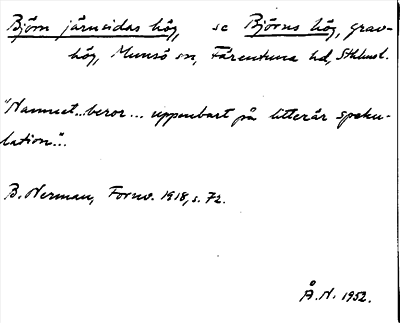 Björn järnsidas hög, se Björns hög, grav-
hög, Munsö sn, Färentuna hd, Sthlmsl.
"Namnet...beror... uppenbart på litterär speku-
lation"...
B. Nerman, Fornv. 1918, s. 72.
Å. N. 1952.